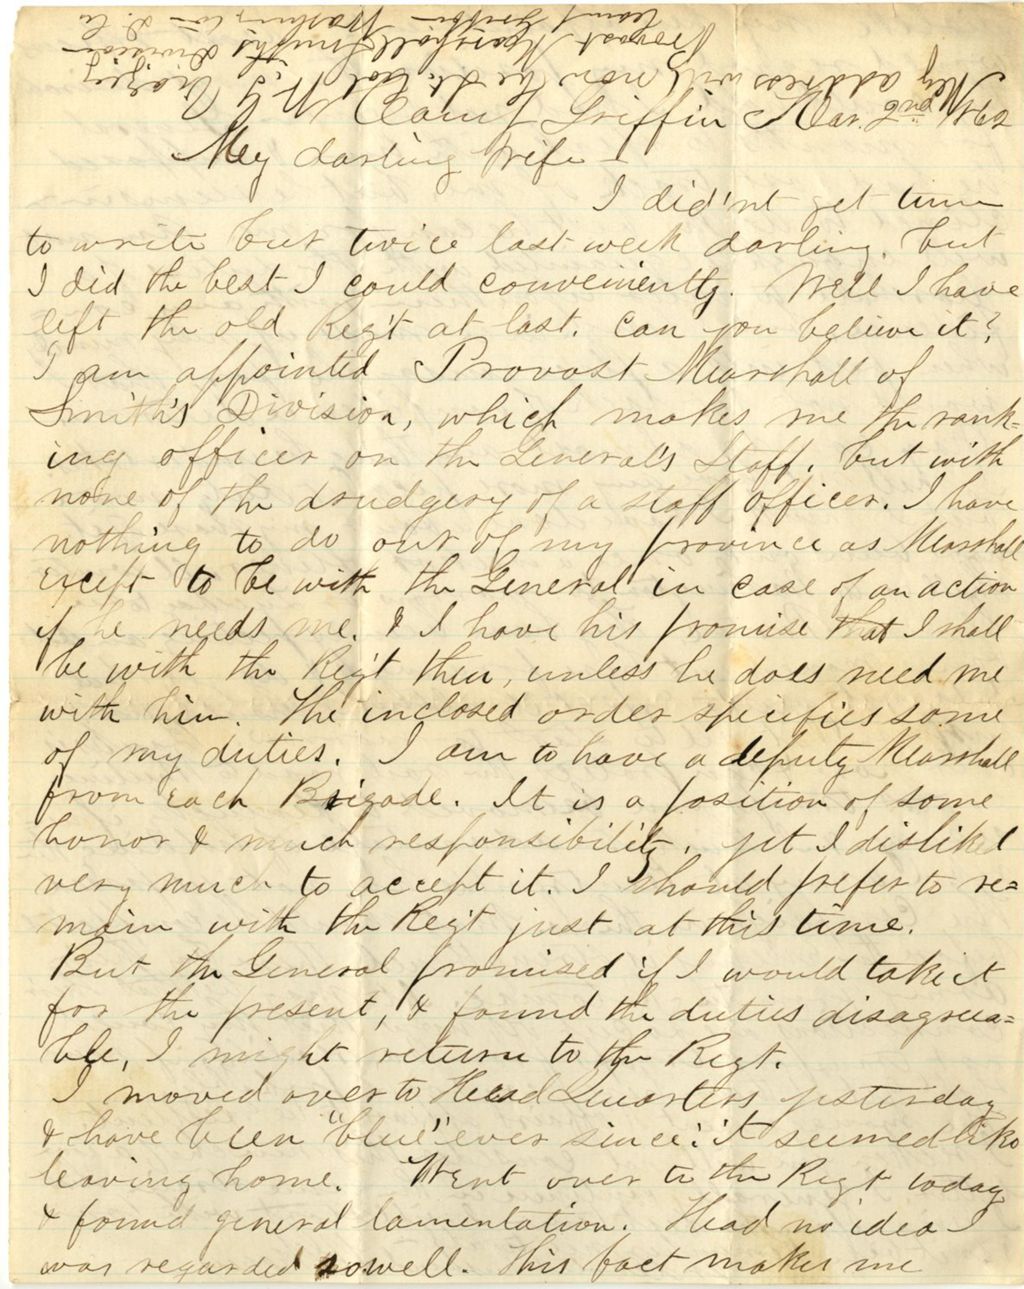 My address will now be Lt. Col N. G.
Provost Marshal Smith's Division
Camp Griffin
Washington D. C.
Camp Griffin Mar. 2nd 1862
My darling wife –
I did'nt get time
to write but twice last week darling, but
I did the best I could conveniently. Well I have
left the old Reg't at last. Can you believe it?
I am appointed Provost Marshall of
Smith's Division, which makes me the rank=
ing officer on the General's Staff, but with
none of the drudgery of a staff officer. I have
nothing to do out of my province as Marshall
except to be with the General in case of an action
if he needs me. & I have his promise that I shall
be with the Reg't then, unless he does need me
with him. The inclosed order specifies some
of my duties. I am to have a deputy Marshall
from each Brigade. It is a position of some
honor & much responsibility. yet I disliked
very much to accept it. I should prefer to re=
main with the Reg't just at this time.
But the General promised if I would take it
for the present, & found the duties disagreea=
ble, I might return to the Regt.
I moved over to Head Quarters yesterday
& have been "blue" ever since. It seemed like
leaving home. Went over to the Regt today
& found general lamentation. Had no idea I
was regarded so well. This fact makes me